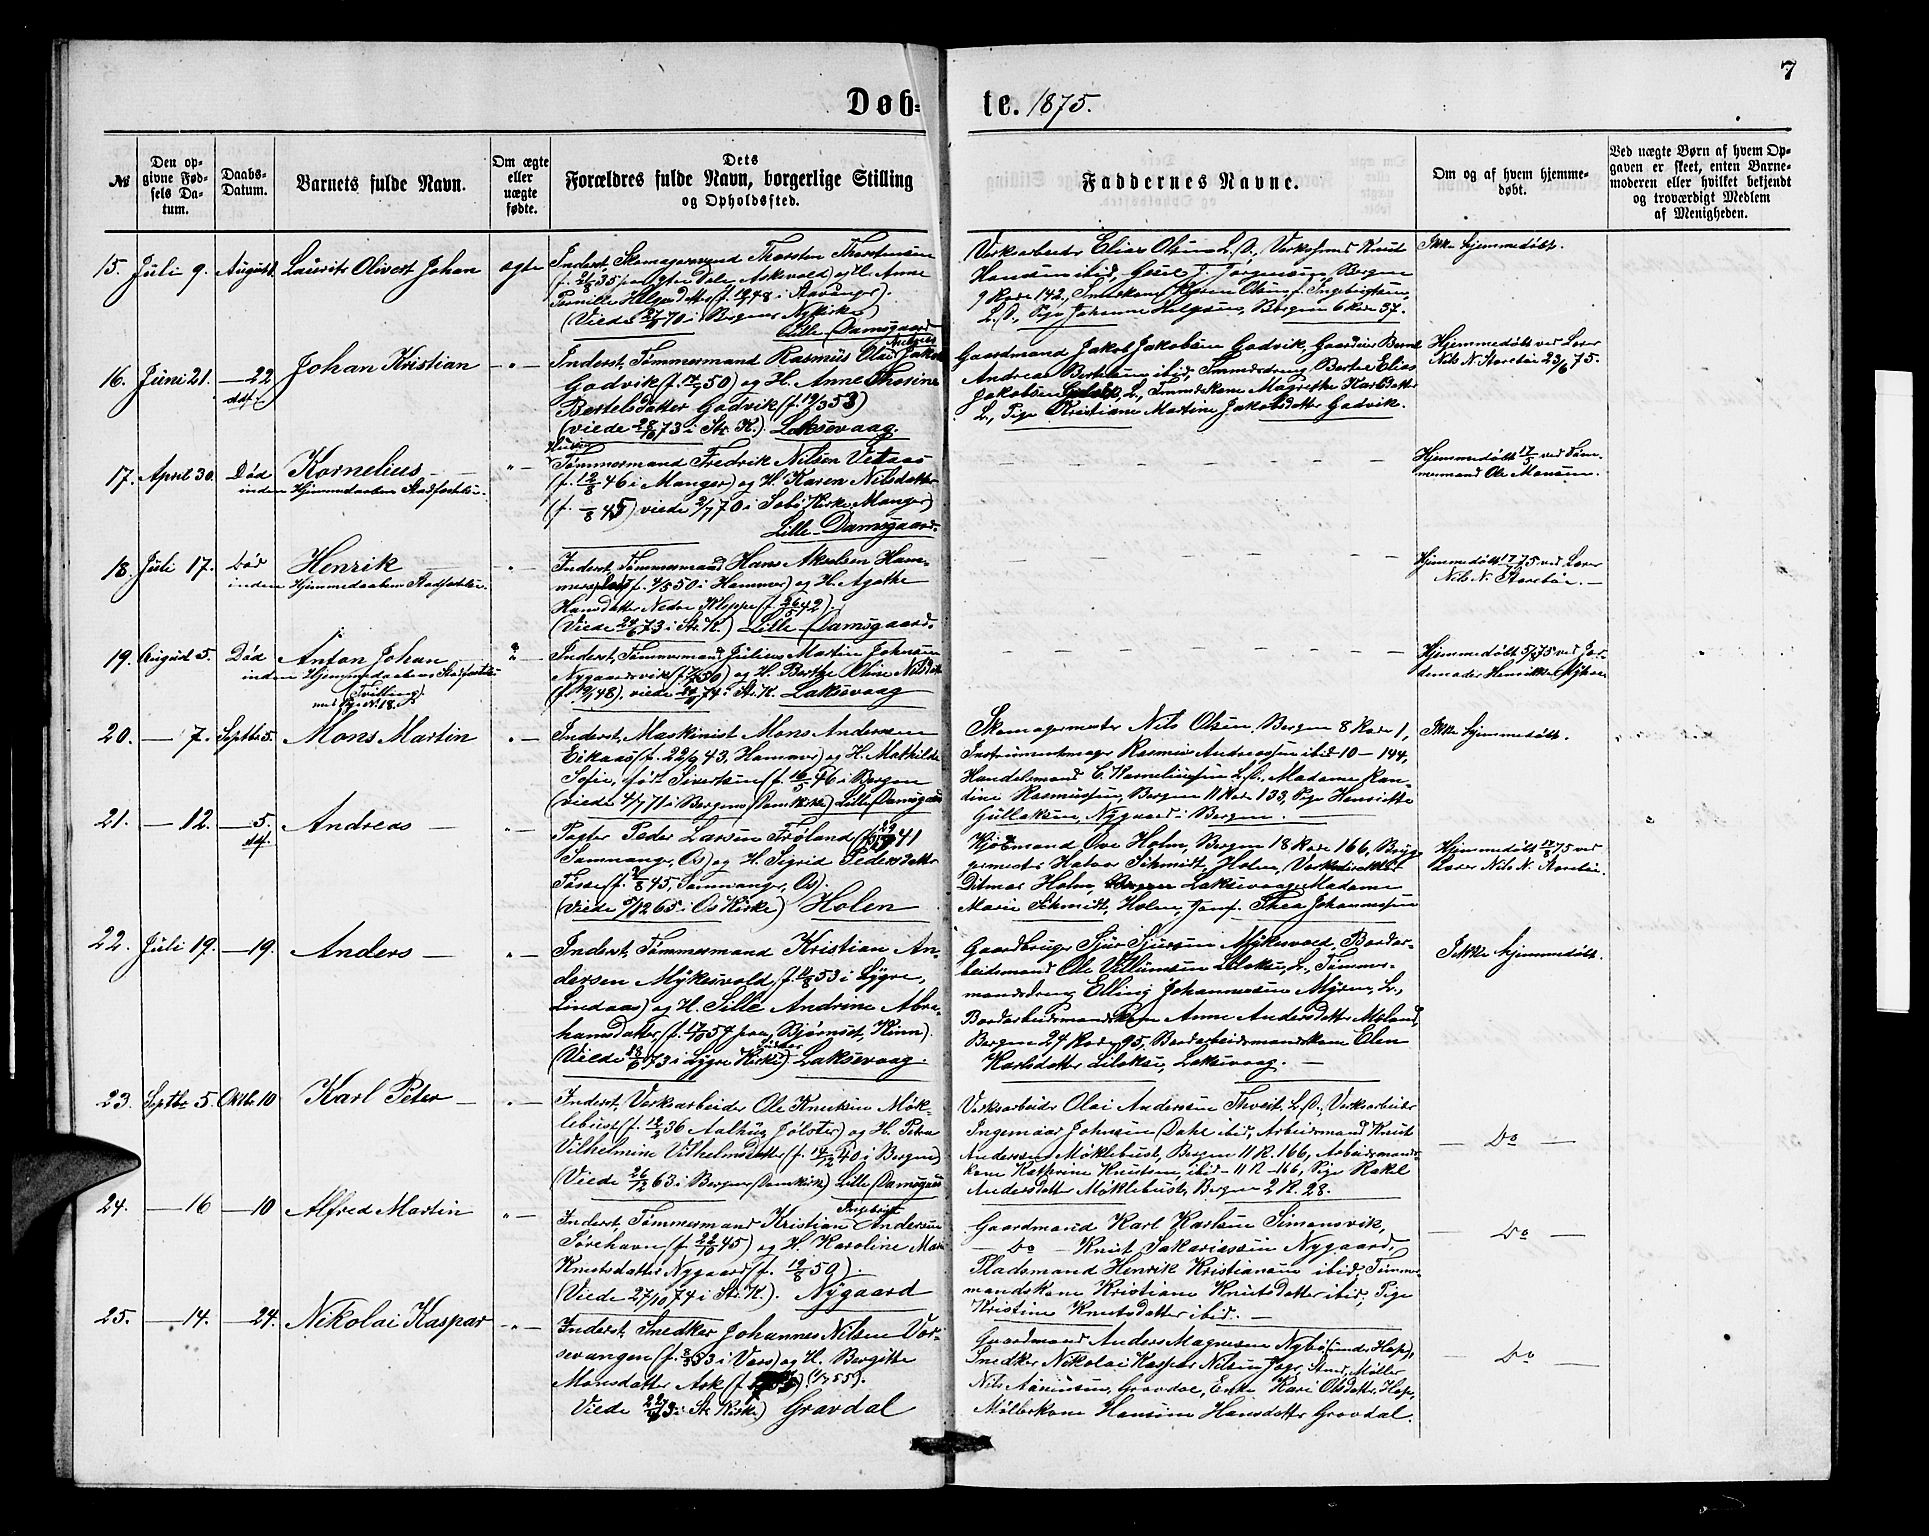 7
Døb-
te. 1875.
№
Den op-
givne Fød-
sels Da-
tum.
Daabs-
Datum.
Barnets fulde Navn.
Om ægte
eller
uægte
fødte.
Dets
Forældres fulde Navn, borgerlige Stilling
og Opholdssted.
Faddernes Navne.
Om og af hvem hjemme-
døbt.
Ved uægte Børn af hvem Op-
gaven er skeet, enten Barne-
moderen eller hvilket bekjendt
og troværdigt Medlem
af Menigheden.
15. Juli 9. August Laurits Olivert Johan ægte
Inderst, Skomagersvend Thorsten Thorstensen
Askvold) og H. Anne
(Viede i Bergens Nykirke)
Lille Damsgaard
Verksarbeider Elias Olsen L. D., Knut
Hansen ibid, J. Jørgensen, Bergen
9 Rode 142,
L. D., Pige Johanne Helgesen, Bergen 6 Rode 37.
Ikke hjemmedøbt.
16. Juni 21. — 22 Johan Kristian — " —
Inderst, Tømmermand Rasmus Olai Jakob
Godvik (f. 50) og H. Anne Thorine
Bertelsdatter Godvik (f. 19/3 53)
(viede 28/10 73 i Str. K.) Laksevaag.
Gaardmand Jakob Jakobsen Godvik, Bernt
Andreas Bertelsen ibid, Bertel Elias
Jakobsen L., Magrethe Karlsdatter
L., Pige Kristiane Martine Jakobsdatter Godvik.
Hjemmedøbt ved Lærer
Nils N. Storebø 23/6 75.
17. April 30. Død Kornelius — " —
inden Hjemmedaabens Stadfæstelse.
Tømmermand Fredrik Nilsen Vetaas
(f. 12/8 46 i Manger) og H. Karen Nilsdatter
(f. /8 45) viede 2/7 70 i Sæbø Kirke, Manger)
Lille Damsgaard.
Hjemmedøbt 17/5 ved Tøm-
mermand Ole Monsen.
18. Juli 17. Død Henrik — " —
inden Hjemmedaabens Stadfæstelse.
Inderst, Tømmermand Hans Akselsen Ham-
(f. 4/5 50 i Hammer) og H. Agathe
Hansdatter Nedre Kleppe (f. 26/5 42).
(Viede 24/6 73 i Str. K.) Lille Damsgaard.
Hjemmedøbt 75 ved Lærer
Nils N. Storebø. —
19. August 5. Død Anton Johan — " —
inden Hjemmedaabens Stadfæstelse
(Tvilling)
Inderst, Tømmermand Julius Martin Johnsen
Nygaardsvik og H. Berthe Oline Nilsdatter
viede 74 i Str. K. Laksevaag
Hjemmedøbt 5/8 75 ved Jor-
demoder Henrikke
20. — 7. Septbr 5. Mons Martin — " —
Inderst, Maskinist Mons Andersen
Eikaas (f. 22/9 43, Hammer) og H. Mathilde
Sofie, født Sivertsen (f. 16/5 46 i Bergen
(viede 4/7 71 i Bergens Domkirke) Lille Damsgaard
Skomagermester Nils Olsen, Bergen 8 Rode 1,
Instrumentmager Rasmus Andreassen ibid 10 — 144,
Handelsmand C. Korneliussen L. D., Madame Ran-
dine Rasmussen, Bergen 11 Rode 133, Pige Henriette
Gullaksen, Nygaard i Bergen. —
Ikke hjemmedøbt.
21. — 12. — 5. Andreas — " —
Pagter Peder Larsen Frøland 41
Sammanger, Os) og H. Sigrid Pedersdatter
Tøsse (f. 3/8 45, Sammanger, Os).
(Viede 5/12 65 i Os Kirke) Holen
Kjøbmand Ove Holm, Bergen 18 Rode 166, Bryg-
germester Halvor Schmidt, Holen, Verksdirektør
Ditmar Holm, Laksevaag, Madame
Marie Schmidt, Holen, Jomf. Thea Johannessen
Hjemmedøbt 17/8 75 ved
Lærer Nils N. Storebø.
22. Juli 19. — 19. Anders — " —
Inderst, Tømmermand Kristian An-
dersen Mykesvold, f. 14/8 53 i Lygre,
Lindaas) og H. Sille Andrine Abra-
hamsdatter (f. 57 paa Bjørnset, Kinn).
(Viede 73 i Lygre Kirke) Laksevaag.
Gaardbruger Sjur Sjursen Mykesvold, Bordar-
beidsmand Ole Villumsen Liloksæ, L., Tømmer-
mandsdreng Elling Johannessen Myren, L.,
Bordarbeidsmandskone Anne Andersdatter Moland,
Bergen 24 Rode 95, Bordarbeidsmandskone Elen
Karlsdatter Liloksæ, Laksevaag. —
Ikke hjemmedøbt.
23. Septbr 5. Oktbr 10 Karl Peter — " —
Inderst, Verksarbeider Ole Knutsen Møk-
lebust (f. 12/2 36 Aalhus, Jølster) og H. Petra
Vilhelmine Vilhelmsdatter (f. 14/2 40 i Bergen)
(Viede 26/12 63 i Bergens Domkirke) Lille Damsgaard
Verksarbeider Olai Andersen Thveit, L. D., Verksarbeider
Ingemaar Johnsen Dahl ibid, Arbeidsmand Knut
Andersen Møklebust, Bergen 11 R. 166, Arbeidsmands-
kone Kathrine Knutsen, ibid — 11 R — 166, Pige Rakel
Andersdatter Møklebust, Bergen 2 R. 28.
— Do —
24. — 16 — 10 Alfred Martin — " —
Inderst, Tømmermand Kristian Ingebrigt Andersen
Sørehavn (f. 22/10 45) og H. Karoline Marie
Knutsdatter Nygaard (f. 19/8 50).
(Viede 27/10 74 i Str. K.). Nygaard
Gaardmand Karl Karlsen Simonsvik,
— Do — Knut Sakariassen Nygaard,
Pladsmand Henrik Kristiansen ibid, Tømmer-
mandskone Kristiane Knutsdatter ibid, Pige
Kristine Knutsdatter ibid. —
— Do —
25. — 14. — 24. Nikolai Kaspar — " —
Inderst, Snedker Johannes Nilsen Vos-
sevangen (f. 53 i Voss) og H. Bergitte
Monsdatter Ask
Viede 73 i Str. Kirke) Gravdal
Gaardmand Anders Magnesen Nybø (under Hop),
Snedker Nikolai Kaspar Nilsen Møller
Nils Gravdal, Enke Kari Olsdatter, Hop,
Møllerkone Hansine Hansdatter Gravdal.
— Do —